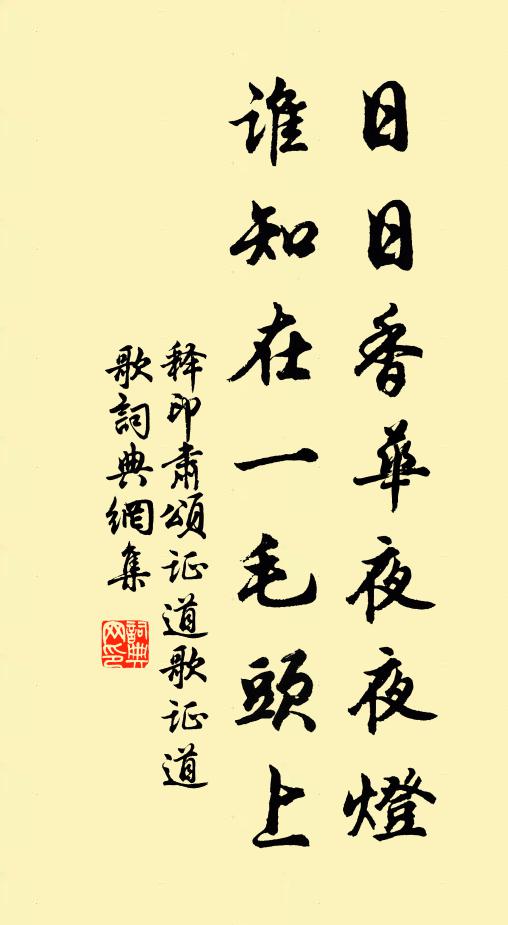 日日香華夜夜燈
誰知在一毛頭上
释印肅頌证道歌证道
歌詞典網集
詞典
网印